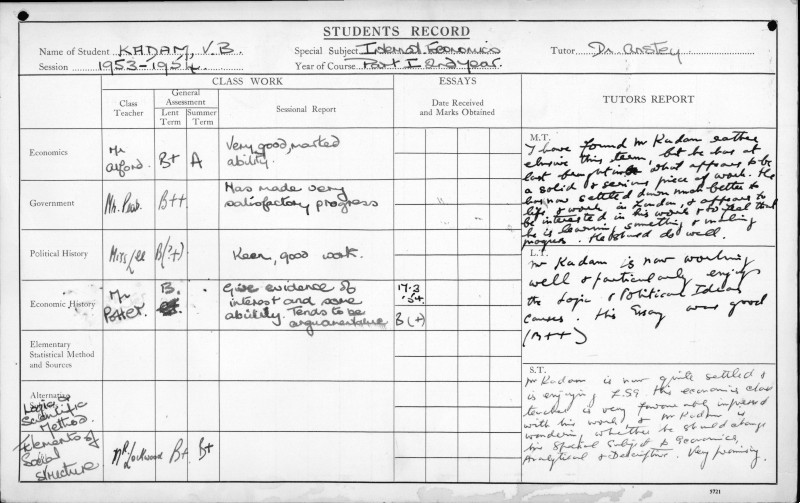 STUDENTS RECORD
Name of Student KADAM, V.B. Special Subject Internat. Economics Tutor Dr Anstey
Session 1953-1954 Year of Course Part I 2nd year.
CLASS WORK ESSAYS TUTORS REPORT
Class Teacher General Assessment Lent Term Summer Term Sessional Report Date Received and Marks Obtained
Economics Mr Alford. B+ A Very good, marked ability.
Government Mr. B++ Has made very satisfactory progress
Political History Miss Lee B(?+) Keen, good work.
Economic History Mr Potter. B. Give evidence of interest and some ability. Tends to be argumentative 17.3.54. B(+)
Elementary Statistical Method and Sources
Alternative
Logic & Scientific Method.
Elements of Social Structure Mr Lockwood B+ B+
M.T.
I have found Mr Kadam rather
elusive this term, but he has at
last brought in what appears to be
a solid & serious piece of work. He
has now settled down much better to
life & work in London, & appears to
be interested in his work & to feel that
he is learning something & making
progress. He should do well.
L.T.
Mr Kadam is now working
well & particularly enjoys
the Logic & Political Ideas
Courses. His Essay was good
(B++)
S.T.
Mr Kadam is now quite settled &
is enjoying LSE. His economics class
teacher is very favourably impressed
with his work & Mr Kadam is
wondering whether he should change
his Special Subject to Economics,
Analytical & Descriptive. Very promising.
5721